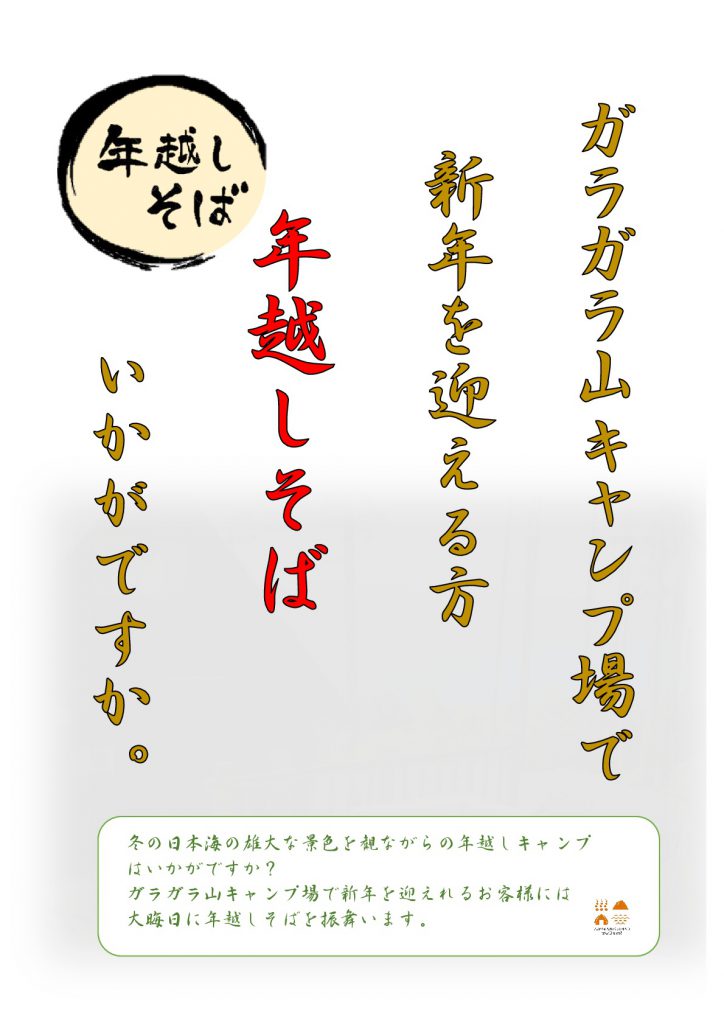 年越し
そば
ガラガラ山キャンプ場で
新年を迎える方
年越しそば
いかがですか。
冬の日本海の雄大な景色を観ながらの年越しキャンプ
はいかがですか？
ガラガラ山キャンプ場で新年を迎えれるお客様には
大晦日に年越しそばを振舞います。